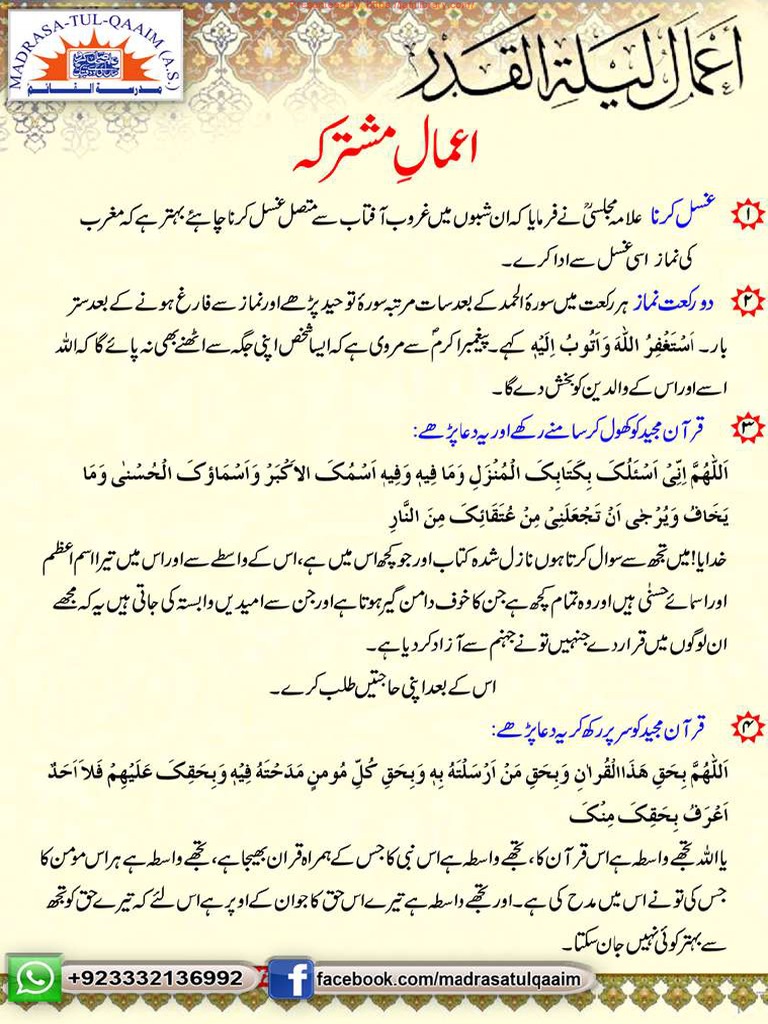 MADRASA-TUL-QAAIM (A.S.)
مدرسة القائم
اَعمَال لَیلَةِ القَدر
اعمالِ مشترکہ
۱ غسل کرنا علامہ مجلسیؒ نے فرمایا کہ ان شبوں میں غروب آفتاب سے متصل غسل کرنا چاہئے بہتر ہے کہ مغرب
کی نماز اسی غسل سے ادا کرے۔
۲ دو رکعت نماز ہر رکعت میں سورۂ الحمد کے بعد سات مرتبہ سورۂ توحید پڑھے اور نماز سے فارغ ہونے کے بعد ستر
بار۔ اَسْتَغْفِرُ اللّٰهَ وَاَتُوبُ اِلَيْهِ کہے۔ پیغمبر اکرمؐ سے مروی ہے کہ ایسا شخص اپنی جگہ سے اٹھنے بھی نہ پائے گا کہ اللہ
اسے اور اس کے والدین کو بخش دے گا۔
۳ قرآن مجید کو کھول کر سامنے رکھے اور یہ دعا پڑھے:
اَللّٰهُمَّ اِنِّىْ اَسْئَلُکَ بِکَتَابِکَ الْمُنْزَلِ وَمَا فِيهِ وَفِيهِ اَسْمُکَ الاَکْبَرُ وَاَسْمَاؤُکَ الْحُسْنٰى وَمَا
يَخَافُ وَيُرْجٰى اَنْ تَجْعَلَنِىْ مِنْ عُتَقَائِکَ مِنَ النَّارِ
خدایا! میں تجھ سے سوال کرتا ہوں نازل شدہ کتاب اور جو کچھ اس میں ہے، اس کے واسطے سے اور اس میں تیرا اسم اعظم
اور اسمائے حسنٰی ہیں اور وہ تمام کچھ ہے جن کا خوف دامن گیر ہوتا ہے اور جن سے امیدیں وابستہ کی جاتی ہیں یہ کہ مجھے
ان لوگوں میں قرار دے جنہیں تو نے جہنم سے آزاد کر دیا ہے۔
اس کے بعد اپنی حاجتیں طلب کرے۔
۴ قرآن مجید کو سر پر رکھ کر یہ دعا پڑھے:
اَللّٰهُمَّ بِحَقِ هَذَاالْقُرانِ وَبِحَقِ مَنْ اَرْسَلْتَهُ بِهٖ وَبِحَقِ کُلِّ مُومنٍ مَدَحْتَهُ فِيْهِ وَبِحَقِکَ عَلَيْهِمْ فَلاَ اَحَدٌ
اَعْرَفُ بِحَقِکَ مِنْکَ
یا اللہ تجھے واسطہ ہے اس قرآن کا، تجھے واسطہ ہے اس نبی کا جس کے ہمراہ قران بھیجا ہے، تجھے واسطہ ہے ہر اس مومن کا
جس کی تو نے اس میں مدح کی ہے۔ اور تجھے واسطہ ہے تیرے اس حق کا جو ان کے اوپر ہے اس لئے کہ تیرے حق کو تجھ
سے بہتر کوئی نہیں جان سکتا۔
+923332136992 facebook.com/madrasatulqaaim